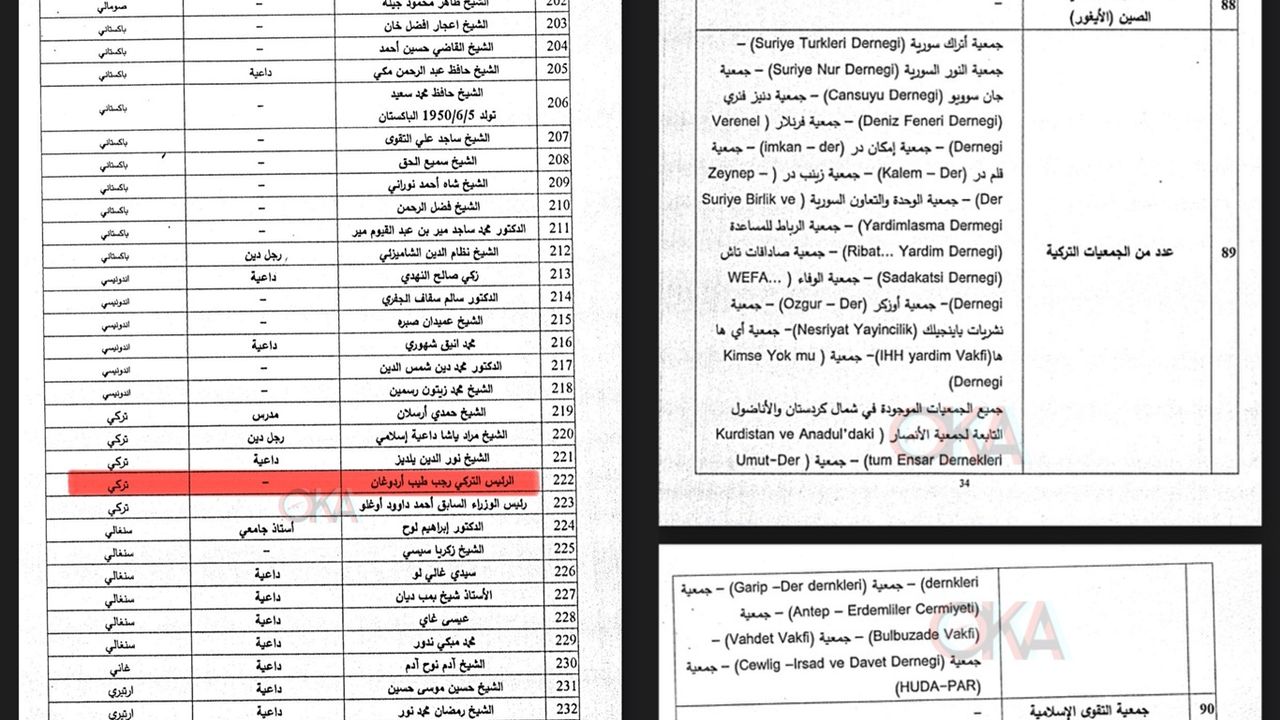 202 الشيخ طاهر محمود جيلة – صومالي
203 الشيخ اعجار افضل خان – باكستاني
204 الشيخ القاضي حسين أحمد – باكستاني
205 الشيخ حافظ عبد الرحمن مكي داعية باكستاني
206 الشيخ حافظ محمد سعيد – باكستاني
تولد 1950/6/5 الباكستان
207 الشيخ ساجد علي التقوى – باكستاني
208 الشيخ سميع الحق – باكستاني
209 الشيخ شاه أحمد نوراني – باكستاني
210 الشيخ فضل الرحمن – باكستاني
211 الدكتور محمد ساجد مير بن عبد القيوم مير – باكستاني
212 الشيخ نظام الدين الشاميزلي رجل دين باكستاني
213 زكي صالح النهدي داعية اندونيسي
214 الدكتور سالم سقاف الجفري – اندونيسي
215 الشيخ عميدان صبره – اندونيسي
216 محمد انيق شهوري داعية اندونيسي
217 الدكتور محمد دين شمس الدين – اندونيسي
218 الشيخ محمد زيتون رسمين – اندونيسي
219 الشيخ حمدي أرسلان مدرس تركي
220 الشيخ مراد ياشا داعية إسلامي رجل دين تركي
221 الشيخ نور الدين يلديز داعية تركي
222 الرئيس التركي رجب طيب أردوغان – تركي
223 رئيس الوزراء السابق أحمد داوود أوغلو تركي
224 الدكتور إبراهيم لوح أستاذ جامعي سنغالي
225 الشيخ زكريا سيسي – سنغالي
226 سيدي غالي لو داعية سنغالي
227 الأستاذ شيخ بمب ديان داعية سنغالي
228 عيسى غاي داعية سنغالي
229 محمد مبكي ندور داعية سنغالي
230 الشيخ آدم نوح آدم داعية غاني
231 الشيخ حسين موسى حسين داعية ارتيري
232 الشيخ رمضان محمد نور داعية ارتيري
OKA
88 –
الصين (الأيغور)
89 عدد من الجمعيات التركية
جمعية أتراك سورية (Suriye Turkleri Dernegi) –
جمعية النور السورية (Suriye Nur Dernegi) – جمعية
جان سوويو (Cansuyu Dernegi) – جمعية دنيز فنري
(Deniz Feneri Dernegi) – جمعية فرنلار ( Verenel
Dernegi) – جمعية إمكان در (imkan – der) – جمعية
قلم در (Kalem – Der) – جمعية زينب در ( – Zeynep
Der) – جمعية الوحدة والتعاون السورية ( Suriye Birlik ve
Yardimlasma Dermegi) – جمعية الرباط للمساعدة
(Ribat... Yardim Dernegi) – جمعية صاداقات تاش
(Sadakatsi Dernegi) – جمعية الوفاء ( ...WEFA
Dernegi) – جمعية أوزكر (Ozgur – Der) – جمعية
نشريات ياينجيلك (Nesriyat Yayincilik) – جمعية أي ها
ها (IHH yardim Vakfi) – جمعية ( Kimse Yok mu
Dernegi)
جميع الجمعيات الموجودة في شمال كردستان والأناضول
التابعة لجمعية الأنصار ( Kurdistan ve Anadul'daki
tum Ensar Dernekleri) – جمعية ( Umut-Der
34
dernkleri) – جمعية (Garip –Der dernkleri) – جمعية
(Antep – Erdemliler Cermiyeti) – جمعية
(Bulbuzade Vakfi) – جمعية (Vahdet Vakfi) –
جمعية (Cewlig –Irsad ve Davet Dernegi) – جمعية
(HUDA-PAR)
90 جمعية التقوى الإسلامية –
OKA
OKA